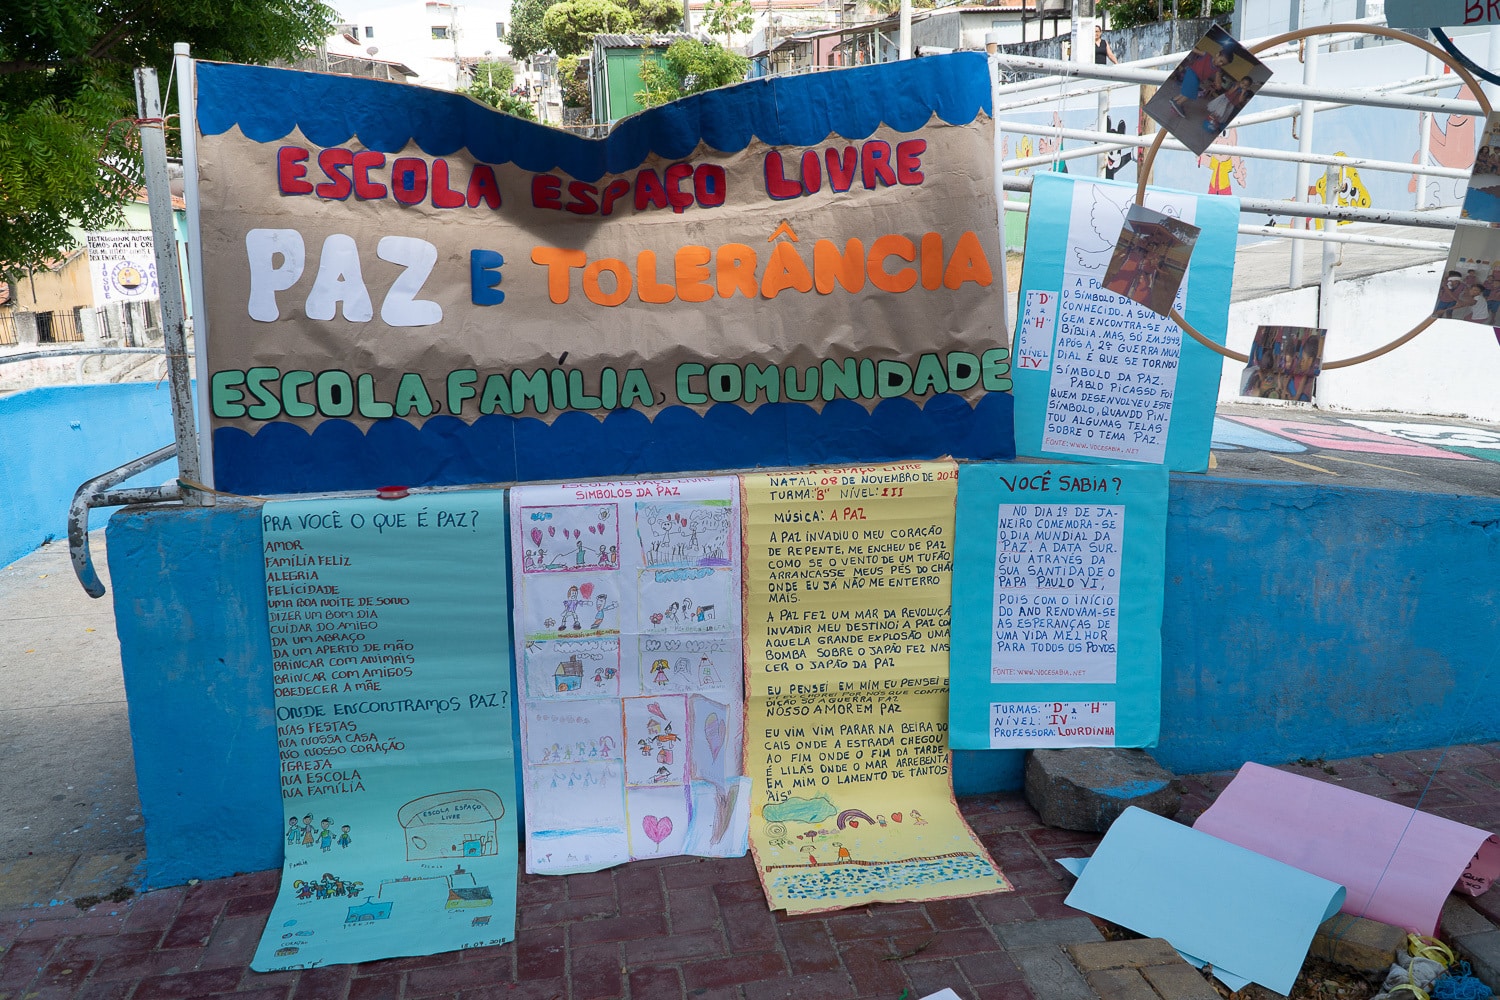 ESCOLA ESPAÇO LIVRE
PAZ E TOLERÂNCIA
ESCOLA, FAMÍLIA, COMUNIDADE
PRA VOCÊ O QUE É PAZ?
AMOR
FAMÍLIA FELIZ
ALEGRIA
FELICIDADE
UMA BOA NOITE DE SONO
DIZER UM BOM DIA
CUIDAR DO AMIGO
DA UM ABRAÇO
DA UM APERTO DE MÃO
BRINCAR COM ANIMAIS
BRINCAR COM AMIGOS
OBEDECER A MÃE
ONDE ENCONTRAMOS PAZ?
NAS FESTAS
NA NOSSA CASA
NO NOSSO CORAÇÃO
IGREJA
NA ESCOLA
NA FAMÍLIA
ESCOLA ESPAÇO
LIVRE
FAMÍLIA
ESCOLA
CASA
IGREJA
ESCOLA ESPAÇO LIVRE
SIMBOLOS DA PAZ
ESCOLA ESPAÇO LIVRE
NATAL, 08 DE NOVEMBRO DE 2018
TURMA: "B" NÍVEL: III
MÚSICA: A PAZ
A PAZ INVADIU O MEU CORAÇÃO
DE REPENTE, ME ENCHEU DE PAZ
COMO SE O VENTO DE UM TUFÃO
ARRANCASSE MEUS PÉS DO CHÃO
ONDE EU JÁ NÃO ME ENTERRO
MAIS.
A PAZ FEZ UM MAR DA REVOLUÇÃ
INVADIR MEU DESTINO; A PAZ COM
AQUELA GRANDE EXPLOSÃO UMA
BOMBA SOBRE O JAPÃO FEZ NAS
CER O JAPÃO DA PAZ
EU PENSEI EM MIM EU PENSEI E
DIÇÃO SÓ A GUERRA FAZ
NOSSO AMOR EM PAZ
EU VIM VIM PARAR NA BEIRA DO
CAIS ONDE A ESTRADA CHEGOU
AO FIM ONDE O FIM DA TARDE
É LILÁS ONDE O MAR ARREBENTA
EM MIM O LAMENTO DE TANTOS
"AIS"
TURMAS
"D"
e
"H"
NÍVEL
IV
O SÍMBOLO DA
CONHECIDO. A SUA
GEM ENCONTRA-SE NA
BÍBLIA. MAS, SÓ EM 1949,
APÓS A 2ª GUERRA MUN
DIAL É QUE SE TORNOU
SÍMBOLO DA PAZ.
PABLO PICASSO FOI
QUEM DESENVOLVEU ESTE
SÍMBOLO, QUANDO PIN
TOU ALGUMAS TELAS
SOBRE O TEMA PAZ.
FONTE: WWW.VOCESABIA.NET
VOCÊ SABIA?
NO DIA 1º DE JA-
NEIRO COMEMORA-SE
O DIA MUNDIAL DA
PAZ. A DATA SUR-
GIU ATRAVÉS DA
SUA SANTIDADE O
PAPA PAULO VI,
POIS COM O INÍCIO
DO ANO RENOVAM-SE
AS ESPERANÇAS DE
UMA VIDA MELHOR
PARA TODOS OS POVOS.
FONTE: WWW.VOCESABIA.NET
TURMAS: "D" e "H"
NÍVEL: "IV"
PROFESSORA: LOURDINHA
BR
DISTRIBUIDOR AUTORI
TEMOS AÇAÍ E CRE
JOSUE
AÇAÍ